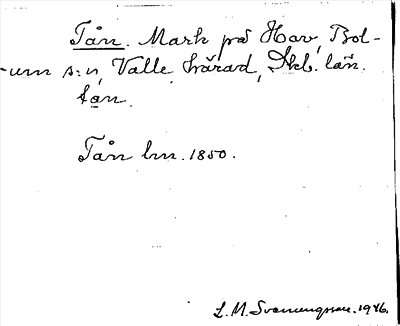 Tån. Mark på Hov, Bol-
-um s:n, Valle härad, Skb. län.
tan.
Tån lm. 1850.
L. M. Svenungsson. 1946.